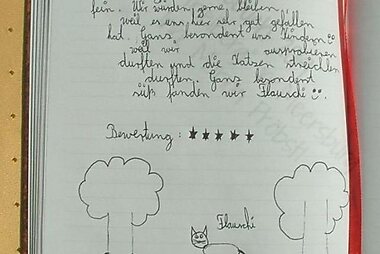 fein. Wir würden gerne bleiben
weil es uns hier sehr gut gefallen
hat. Ganz besondent uns Kindern
weil wir ausprobieren
durften und die Katzen streicheln
durften. Ganz besondent
süß fanden wir Flauschi
Bewertung: ★★★★★
Flauschi